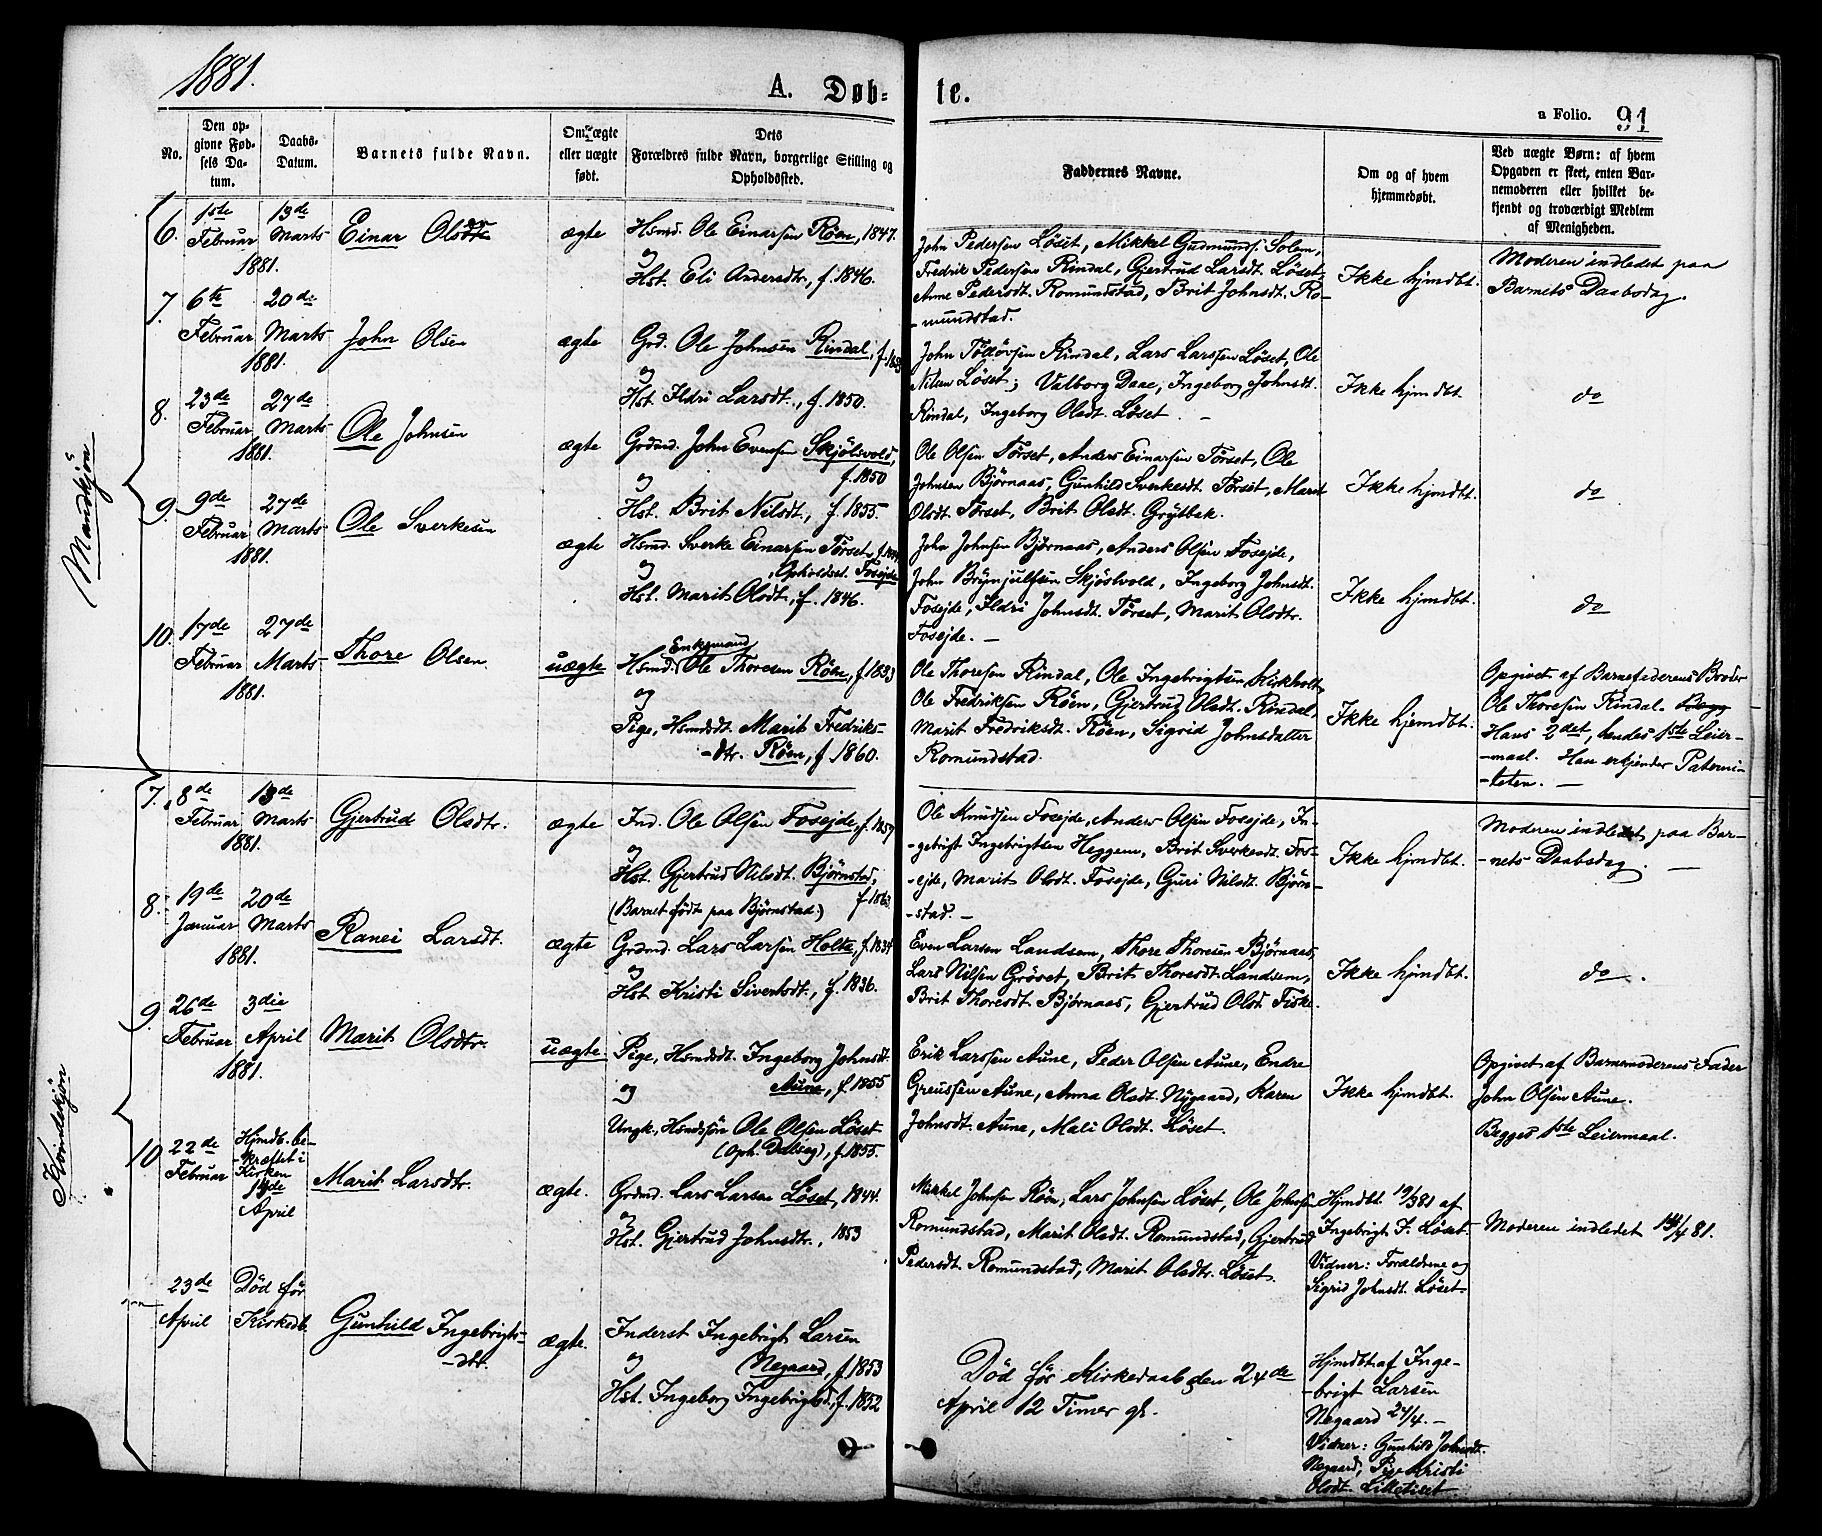 1881.
A. Døb-
te.
a Folio. 91
No.
Den op-
givne Fød-
sels Da-
tum.
Daabs-
Datum.
Barnets fulde Navn.
Om ægte
eller uægte
født.
Dets
Forældres fulde Navn, borgerlige Stilling og
Opholdssted.
Faddernes Navne.
Om og af hvem
hjemmedøbt.
Ved uægte Børn: af hvem
Opgaven er skeet, enten Bar-
nemoderen eller hvilket be-
kjendt og troværdigt Medlem
af Menigheden.
Mandkjøn
6.
1ste
Februar
13de
Marts
1881.
Einar Olsen
ægte
Hsmd. Ole Einarsen Röen, 1847.
og
Hst. Eli Andersdtr, f. 1846.
John Pedersen Löset, Mikkel Gudmunds. Solem,
Fredrik Pedersen Rindal, Gjertrud Larsdt. Löset,
Anne Pedersdt. Romundstad, Brit Johnsdt. Ro-
-mundstad.
Ikke hjmdbt.
Moderen indledet paa
Barnets Daabsdag.
7.
6te
Februar
20de
Marts
1881.
John Olsen
ægte
Grd. Ole Johnsen Rindal,
og
Hst. Ildri Larsdt., f. 1850.
John Rindal, Lars Larssen Löset, Ole
Nilsen Löset; Valborg Daae, Ingeborg Johnsdt.
Rindal, Ingeborg Olsdt. Löset. -
Ikke hjmdbt.
do
8.
23de
Februar
27de
Marts
1881.
Ole Johnsen
ægte
Grdmd. John Evensen Skjölsvold,
f. 1850
og
Hst. Brit Nilsdt., f. 1855.
Ole Olsen Törset, Anders Einarsen Törset, Ole
Johnsen Björnaas, Gunhild Sverkesdt. Törset, Marit
Olsdt. Törset, Brit Olsdt. Grytbak.
Ikke hjmdbt.
do
9.
9de
Februar
27de
Marts
1881.
Ole Sverkesen
ægte
Hsmd. Sverke Einarsen Törset,
, Opholdsst. Fosejde
og
Hst. Marit Olsdt., f. 1846.
John Johnsen Björnaas, Anders Olsen Fosejde,
John Brynjulfsen Skjölsvold, Ingeborg Johnsdt.
Fosejde, Ildri Johnsdt. Törset, Marit Olsdtr.
Fosejde. -
Ikke hjmdbt.
do
10.
17de
Februar
27de
Marts
1881.
Thore Olsen
uægte
Enkemand
Hsmd. Ole Thoresen Röen, f 1833
og
Pige, Hsmdsdt. Marit Fredriks-
-dtr. Röen, f 1860.
Ole Thoresen Rindal, Ole Ingebrigtsen Kirkholt,
Ole Fredriksen Röen, Gjertrud Olsdt. Rindal,
Marit Fredriksdt. Röen, Sigrid Johnsdatter
Romundstad.
Ikke hjemdbt.
Opgivet af Barnefaderens Broder
Ole Thoresen Rindal. Begg
Hans 2det, hendes 1ste Leier-
-maal. Han erkjender Paterni-
-teten. -
Kvindekjøn
7.
8de
Februar
13de
Marts
1881.
Gjertrud Olsdtr.
ægte
Ind. Ole Olsen Fosejde, f. 1857
og
Hst. Gjertrud Nilsdt. Björnstad,
(Barnet födt paa Björnstad.)
Ole Knudsen Fosejde, Anders Olsen Fosejde, In-
-gebrigt Ingebrigtsen Heggem, Brit Sverkesdt. Fos-
-ejde, Marit Olsdt. Fosejde, Guri Nilsdt. Björn-
-stad. -
Ikke hjmdbt.
Moderen indledet paa Bar-
-nets Daabsdag. -
8.
19de
Januar
20de
Marts
1881.
Ranei Larsdt.
ægte
Grdmd. Lars Larsen Holte, f. 1834
og
Hst. Kristi Sivertsdt., f. 1836.
Even Larsen Landsem, Thore Thoresen Björnaas,
Lars Nilsen Gröset, Brit Thoresdt. Landsem,
Brit Thoresdt. Björnaas, Gjertrud Olsdt. Fiske.
Ikke hjmdbt.
do.
9
26de
Februar
3die
April
1881.
Marit Olsdtr.
uægte.
Pige, Hsmdsdt. Ingeborg Johnsdt.
Aune, f. 1855
og
Ungk., Hsmdssön Ole Olsen Löset
(Oph. Dalseg), f. 1855.
Erik Larssen Aune, Peder Olsen Aune, Endre
Greussen Aune, Anna Olsdt. Nygaard, Karen
Johnsdt. Aune, Mali Olsdt. Löset.
Ikke hjmdbt.
Opgivet af Barnemoderens Fader
John Olsen Aune.
Begges 1ste Leiermaal.
10
22de
Februar
Hjmdb. be-
-kræftet i
Kirken
18de
April
Marit Larsdtr.
ægte.
Grdmd. Lars Larsen Löset, 1844.
og
Hst. Gjertrud Johnsdtr., 1853
Mikkel Johnsen Röen, Lars Johnsen Löset, Ole Johnsen
Romundstad, Marit Olsdt. Romundstad, Gjertrud
Pedersdt. Romundstad, Marit Olsdtr. Löset.
Hjmdbt. 19/3 81 af
Ingebrigt F. Löset.
Vidner: Forældrene og
Sigrid Johnsdt. Löset.
Moderen indledet 18/4 81.
23de
April
Död för
Kirkedb.
Gunhild Ingebrigts-
-dtr.
ægte.
Inderst Ingebrigt Larsen
og
Negaard, f. 1853
Hst. Ingeborg Ingebrigtsd., f. 1852
Död för Kirkedaab den 24de
April 12 Timer gl.
Hjmdbt. af Inge-
-brigt Larsen
Negaard 24/4. -
Vidner: Gunhild Johnsdt.
Negaard, Pige Kristi
Olsdt. Lilletiset